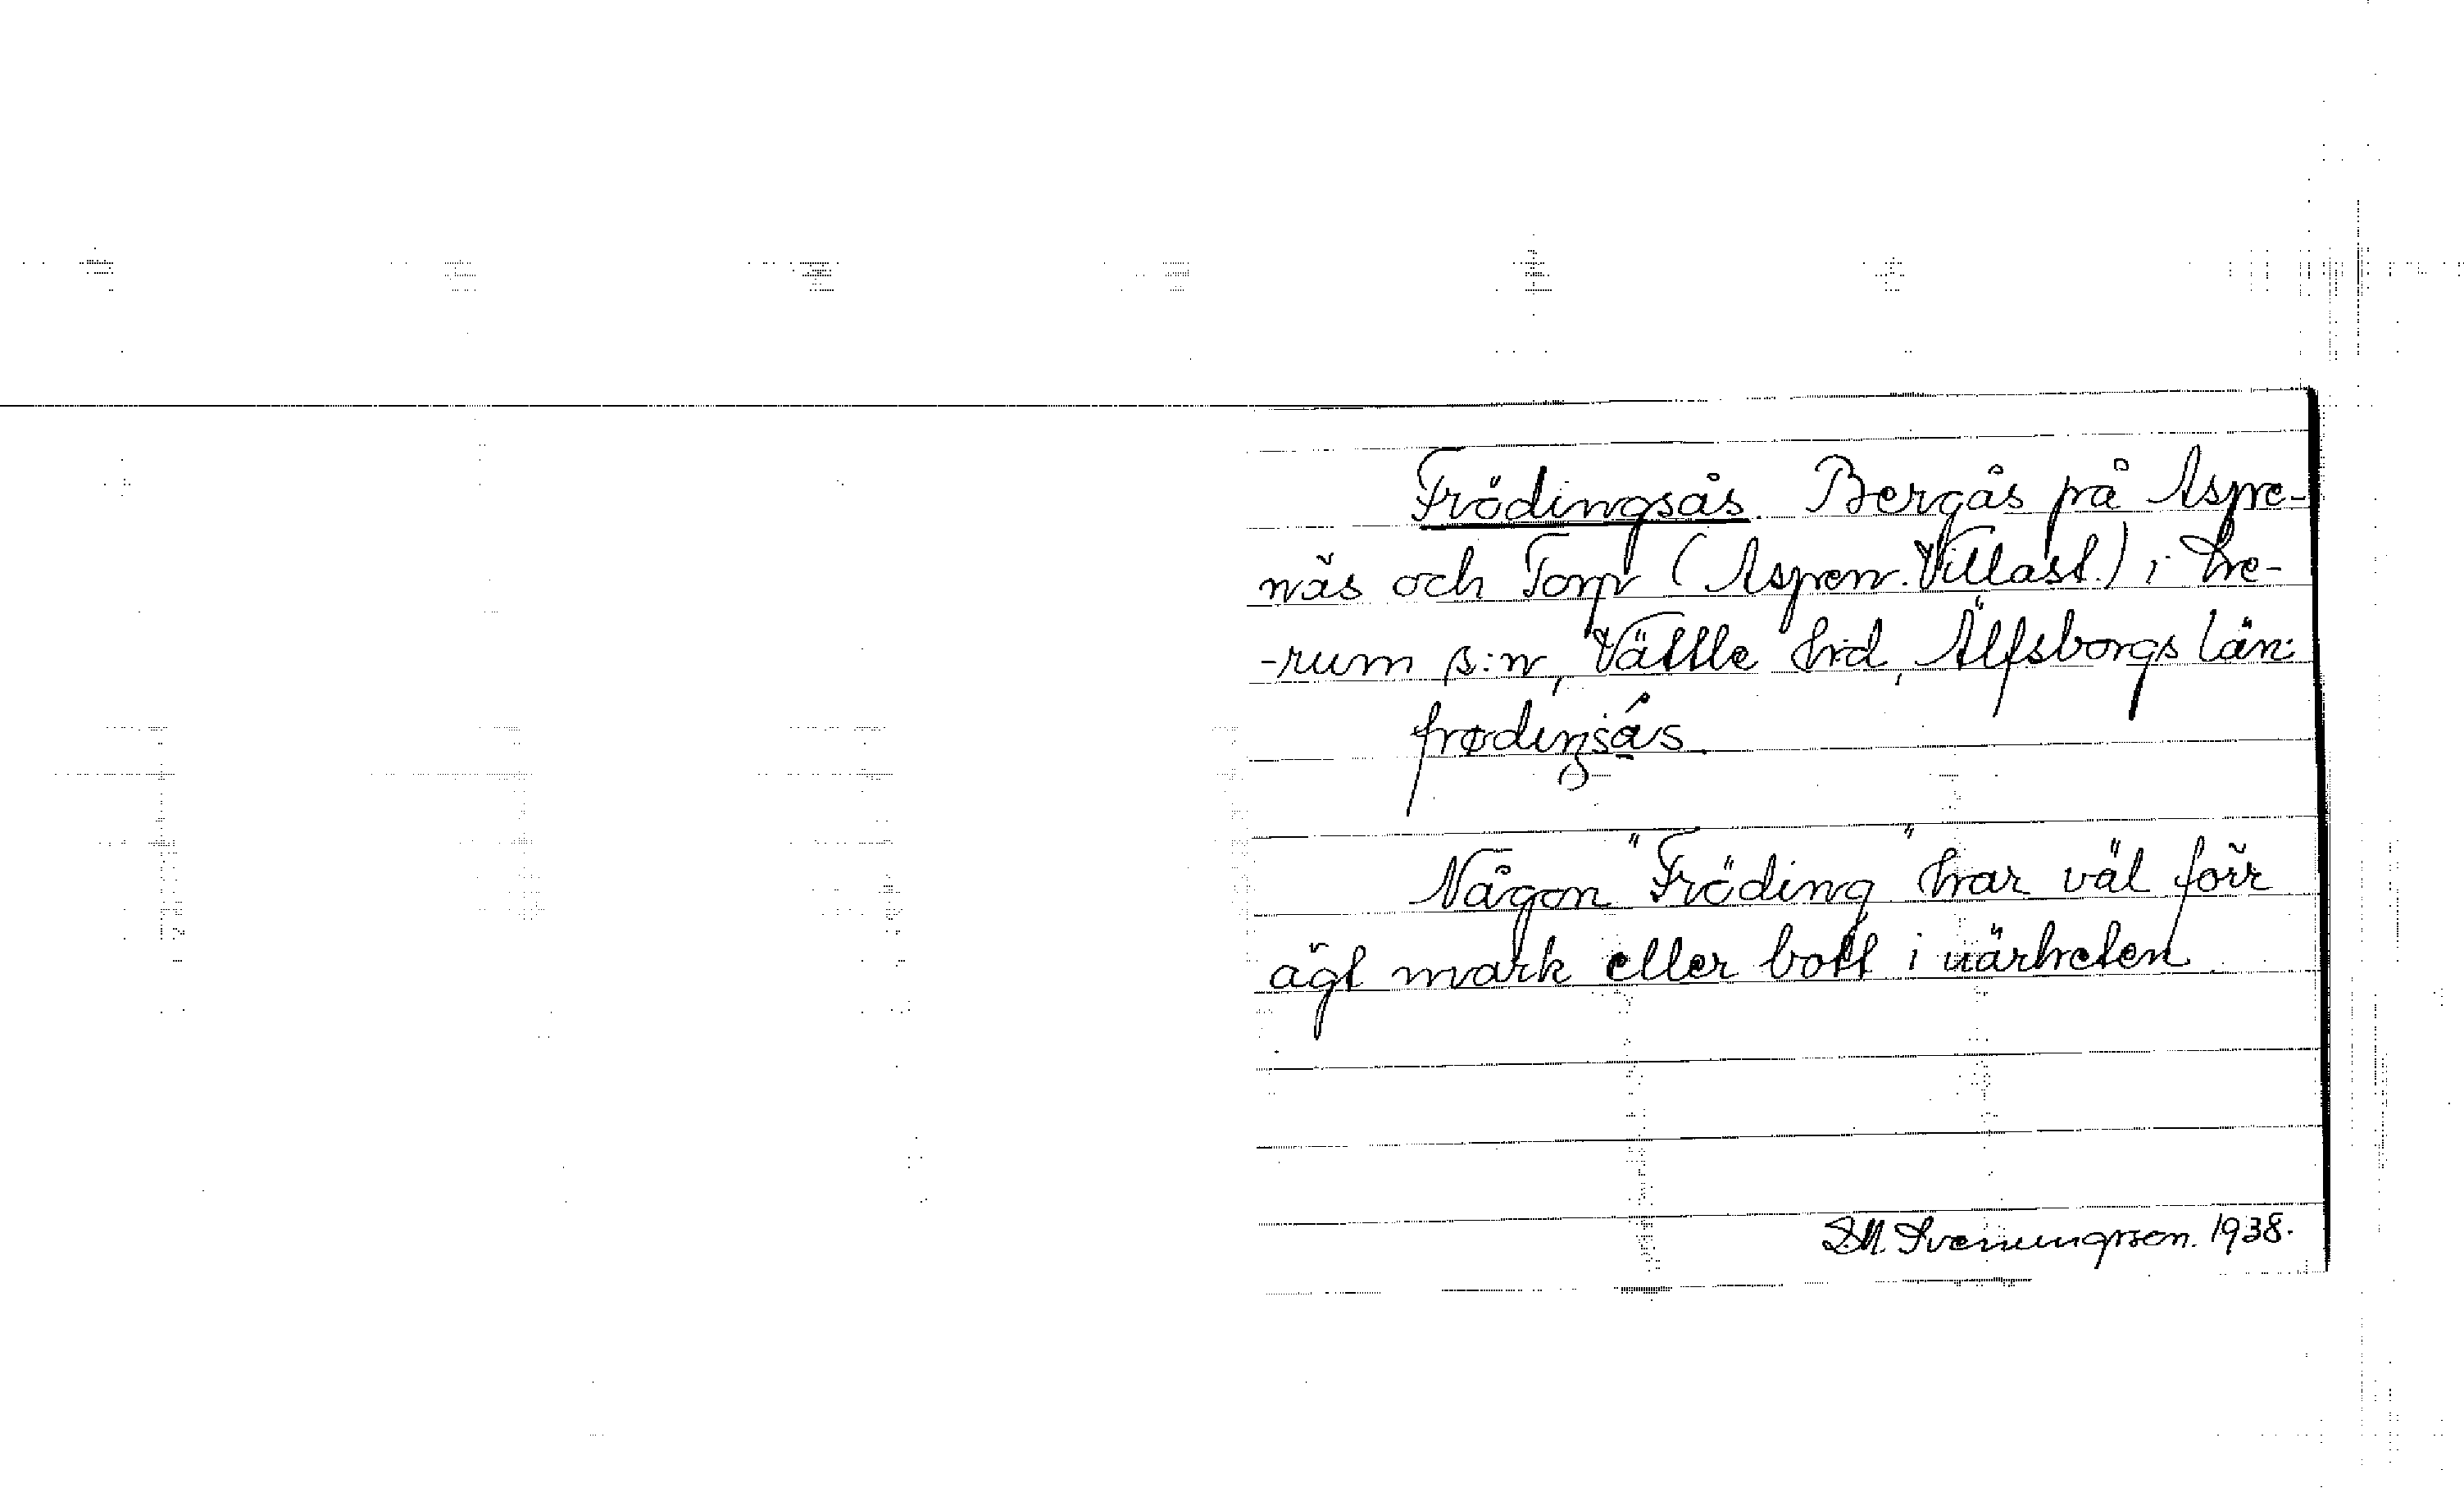 Frödingsås. Bergås på Aspe-
näs och Torp (Aspen. Villast.) i Le-
-rum s:n, Vättle hrd, Älfsborgs län:
frødiŋsås
Någon "Fröding" har väl förr
ägt mark eller bott i närheten
D.M. Svenungsson. 1938.